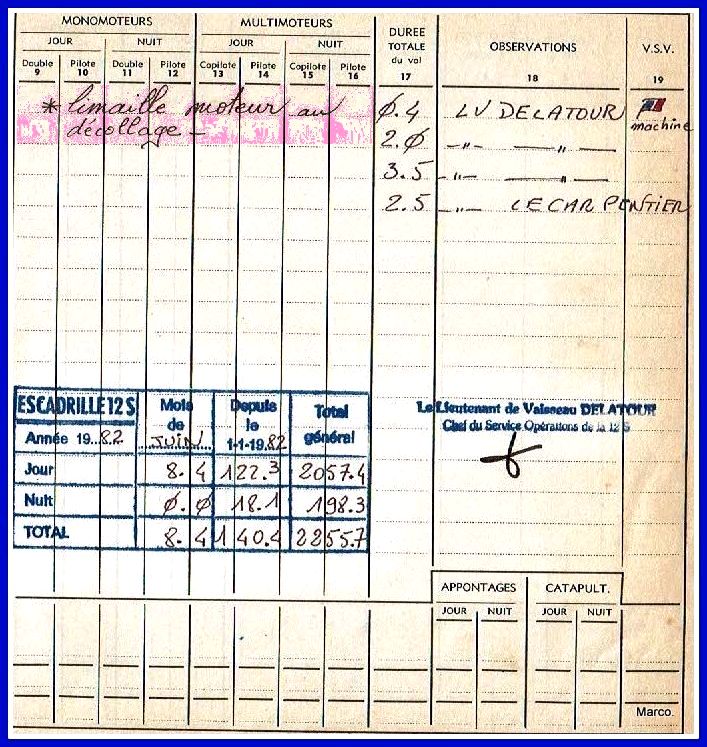 MONOMOTEURS MULTIMOTEURS DUREE TOTALE du vol OBSERVATIONS V.S.V.
JOUR NUIT JOUR NUIT
Double Pilote Double Pilote Copilote Pilote Copilote Pilote
9 10 11 12 13 14 15 16 17 18 19
* limaille moteur au Ø.4 LV DELATOUR
décollage - machine
2.Ø -"- -"-
3.5 -"- -"-
2.5 -"- LECARPENTIER
ESCADRILLE 12 S Mois de JUIN Depuis le 1-1-1982 Total général
Année 19..82
Jour 8.4 122.3 2057.4
Nuit Ø.Ø 18.1 198.3
TOTAL 8.4 140.4 2255.7
Le Lieutenant de Vaisseau DELATOUR
Chef du Service Opérations de la 12 S
APPONTAGES CATAPULT.
JOUR NUIT JOUR NUIT
Marco.